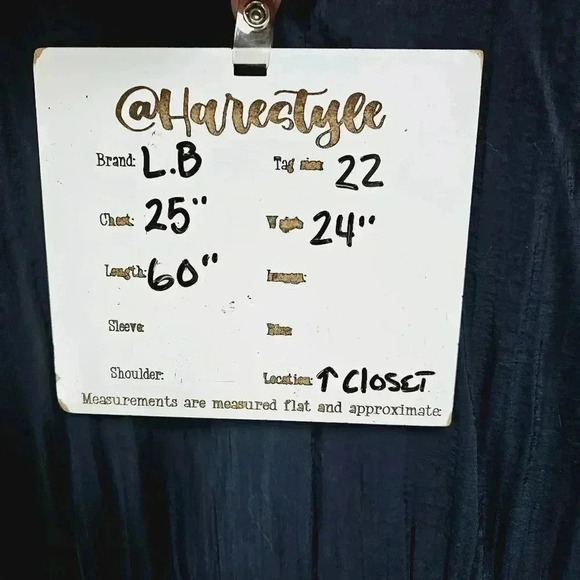 @Harestyle
Brand: L.B Tag size 22
Chest: 25" 24"
Length: 60"
Sleeve:
Shoulder: Location: ↑ CLOSET
Measurements are measured flat and approximate.